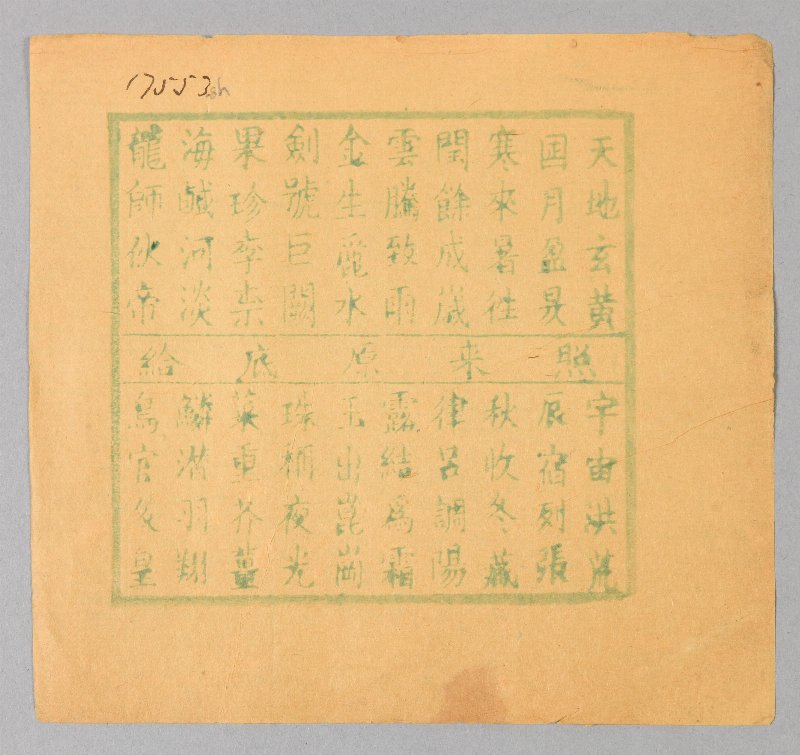 17553
天地玄黃
囯月盈昃
寒來暑往
閏餘成歲
雲騰致雨
金生麗水
劍號巨闕
果珍李柰
海鹹河淡
龍師伙帝
照来原底給
宇宙洪荒
辰宿列張
秋收冬藏
律呂調陽
露結爲霜
玉出崑崗
珠稱夜光
菜重芥薑
鱗潛羽翔
鳥官皇